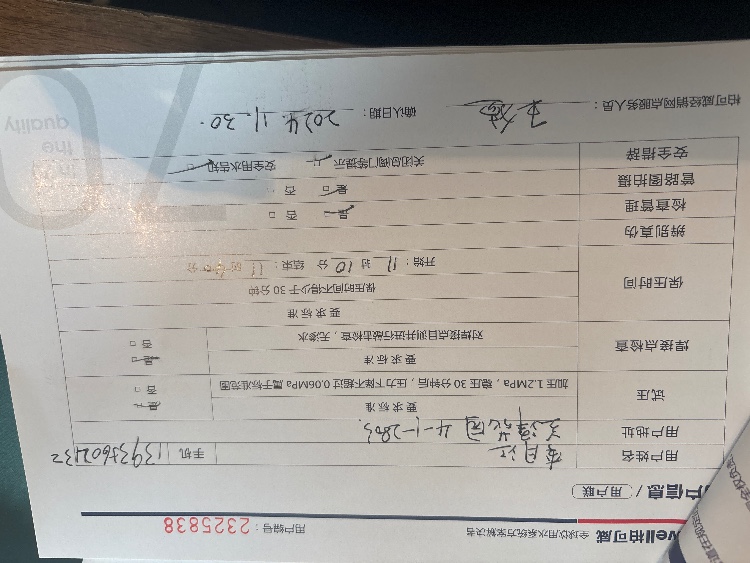 well柏可威 全球饮用水系统方案解决者 用户编号：2325838
户信息 / 用户联
用户姓名 手机
用户地址 4-1-2803
试压 要求标准 是
加压1.2MPa，稳压30分钟后，压力下降不超过0.06MPa 属于标准范围 否
焊接点检查 要求标准 是
对焊接点目测并进行敲击检查，无渗水 否
保压时间 要求标准
保压时间不得少于30分钟
开始：11 时 10 分 结束：11 分
辨别真伪
检查管理 是 否
管路图拍摄 是 否
安全措辞 关闭总阀门等提示 安全用水告知
柏可威经销网点服务人员： 确认日期：2024.11.30.
the
quality